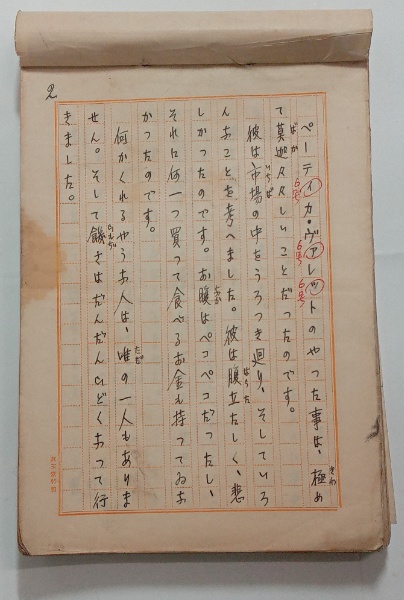 2
ペーティカ・ヴァレットのやつた事は、極め
きわ
6号
6号
6号
て莫迦々々しいことだつたのです。
ばか
彼は、市場の中をうろつき廻り、そしていろ
いちば
んなことを考へました。彼は腹立たしく、悲
しかつたのです。お腹はペコペコだつたし、
なか
それに何一つ買つて食べるお金も持つてゐな
かつたのです。
何かくれるやうな人は、唯の一人もありま
ただ
せん。そして饑さはだんだんひどくなつて行
きました。